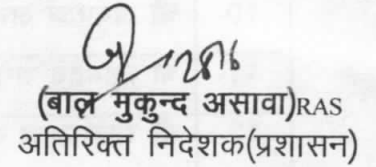 (बाल मुकुन्द असावा)RAS
अतिरिक्त निदेशक(प्रशासन)